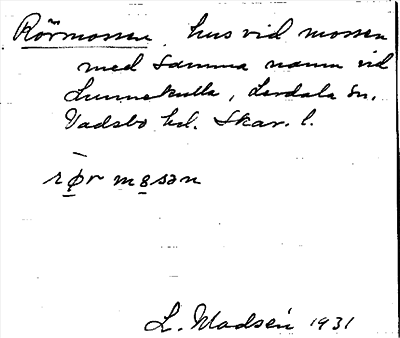 Rörmossen hus vid mossen
med samma namn vid
Lunnekulla, Lerdala sn.
Vadsbo hd. Skar. l.
rø̅r mosən
L. Madsén 1931